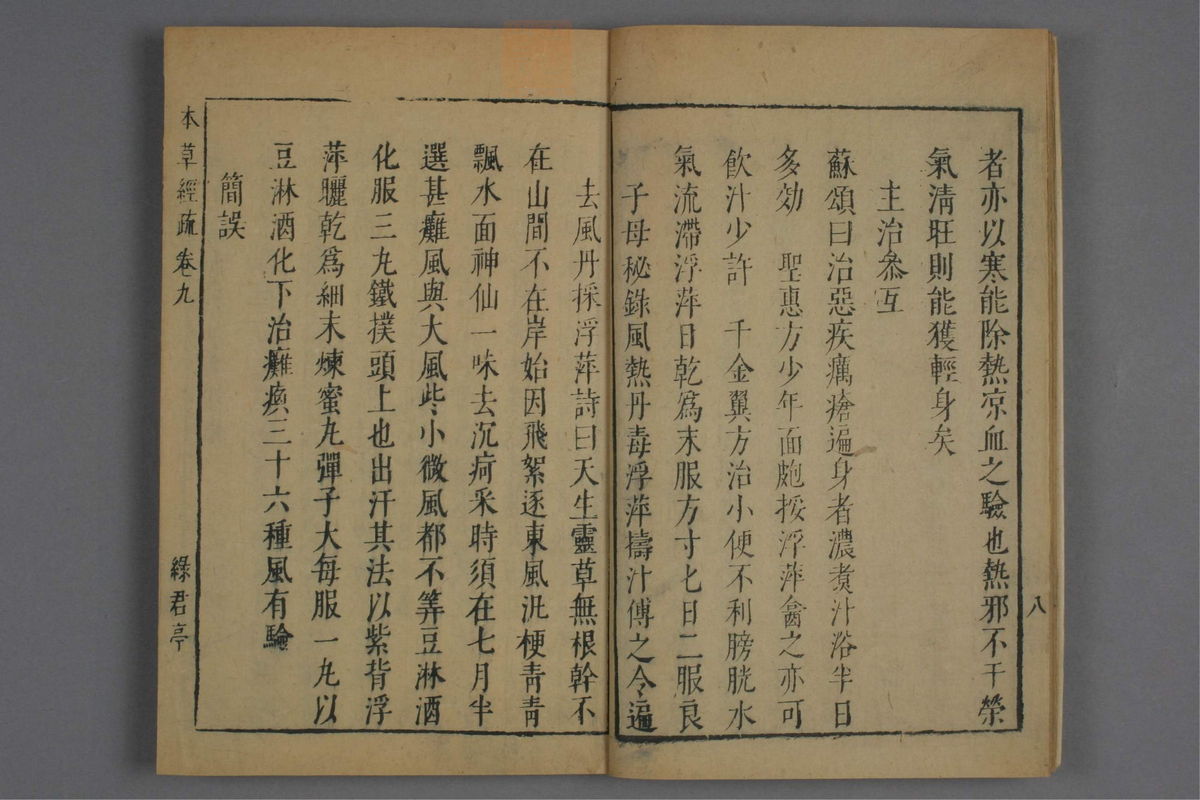 者亦以寒能除熱凉血之驗也熱邪不干榮
氣清旺則能獲輕身矣
主治叅互
蘇頌曰治惡疾癘瘡遍身者濃煑汁浴半日
多効　聖惠方少年面皰挼浮萍龕之亦可
飲汁少許　千金翼方治小便不利膀胱水
氣流滯浮萍日乾爲末服方寸匕日二服良
子母秘錄風熱丹毒浮萍擣汁傅之令遍
八
去風丹採浮萍詩曰天生靈草無根幹不
在山間不在岸始因飛絮逐東風汎梗青青
飄水面神仙一味去沉疴采時須在七月半
選甚癱風與大風些小微風都不筭豆淋酒
化服三丸鐵撲頭上也出汗其法以紫背浮
萍曬乾爲細末煉蜜丸彈子大每服一丸以
豆淋酒化下治癱瘓三十六種風有驗
簡誤
本草經疏卷九
綠君亭